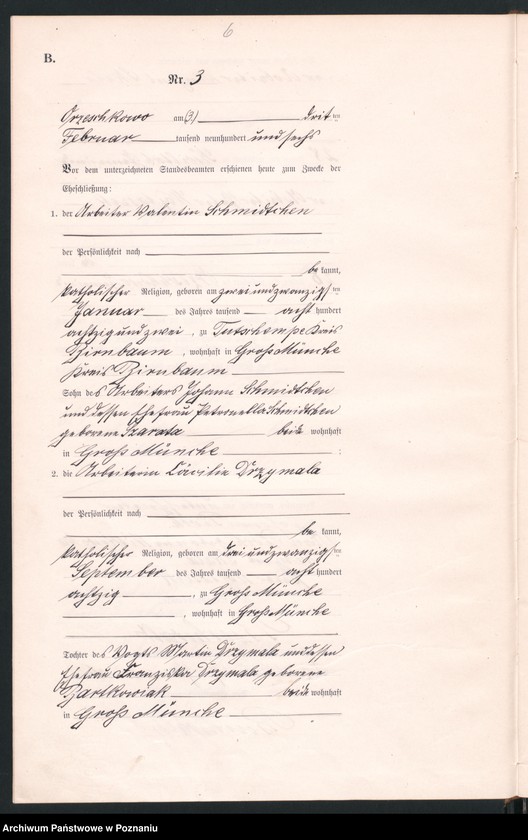 6
B.
Nr. 3
Orzeschkowo am (3) drit ten
Februar tausend neunhundert und sechs
Vor dem unterzeichneten Standesbeamten erschienen heute zum Zwecke der
Eheschließung:
1. der Arbeiter Valentin Schmidtchen
der Persönlichkeit nach
be kannt,
katholischer Religion, geboren am zweiundzwanzigs ten
Januar des Jahres tausend acht hundert
achtzig und zwei, zu Tutschempe Kreis
Birnbaum, wohnhaft in Groß Münche
Kreis Birnbaum
Sohn des Arbeiters Johann Schmidtchen
und dessen Ehefrau Petronella Schmidtchen
geborene Szarata beide wohnhaft
in Groß Münche :
2. die Arbeiterin Cäcilia Drzymala
der Persönlichkeit nach
be kannt,
katholischer Religion, geboren am dreiundzwanzigs ten
September des Jahres tausend acht hundert
achtzig, zu Groß Münche
, wohnhaft in Groß Münche
Tochter des Vogts Martin Drzymala und dessen
Ehefrau Franziska Drzymala geborene
Bartkowiak beide wohnhaft
in Groß Münche
Archiwum Państwowe w Poznaniu